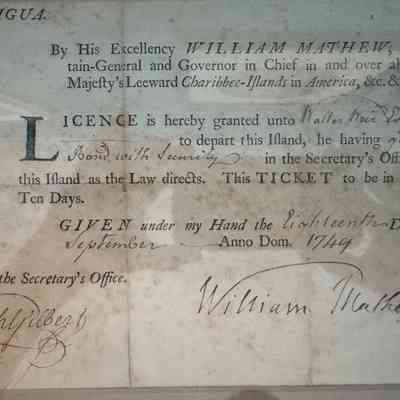 IGUA.
By His Excellency WILLIAM MATHEW,
tain-General and Governor in Chief in and over al
Majesty's Leeward Charibbee-Islands in America, &c. &
LICENCE is hereby granted unto Walter
to depart this Island, he having
Bond with Security in the Secretary's Offi
this Island as the Law directs. This TICKET to be in
Ten Days.
GIVEN under my Hand the Eighteenth D
September Anno Dom. 1749
the Secretary's Office.
Gilbert William Mathe